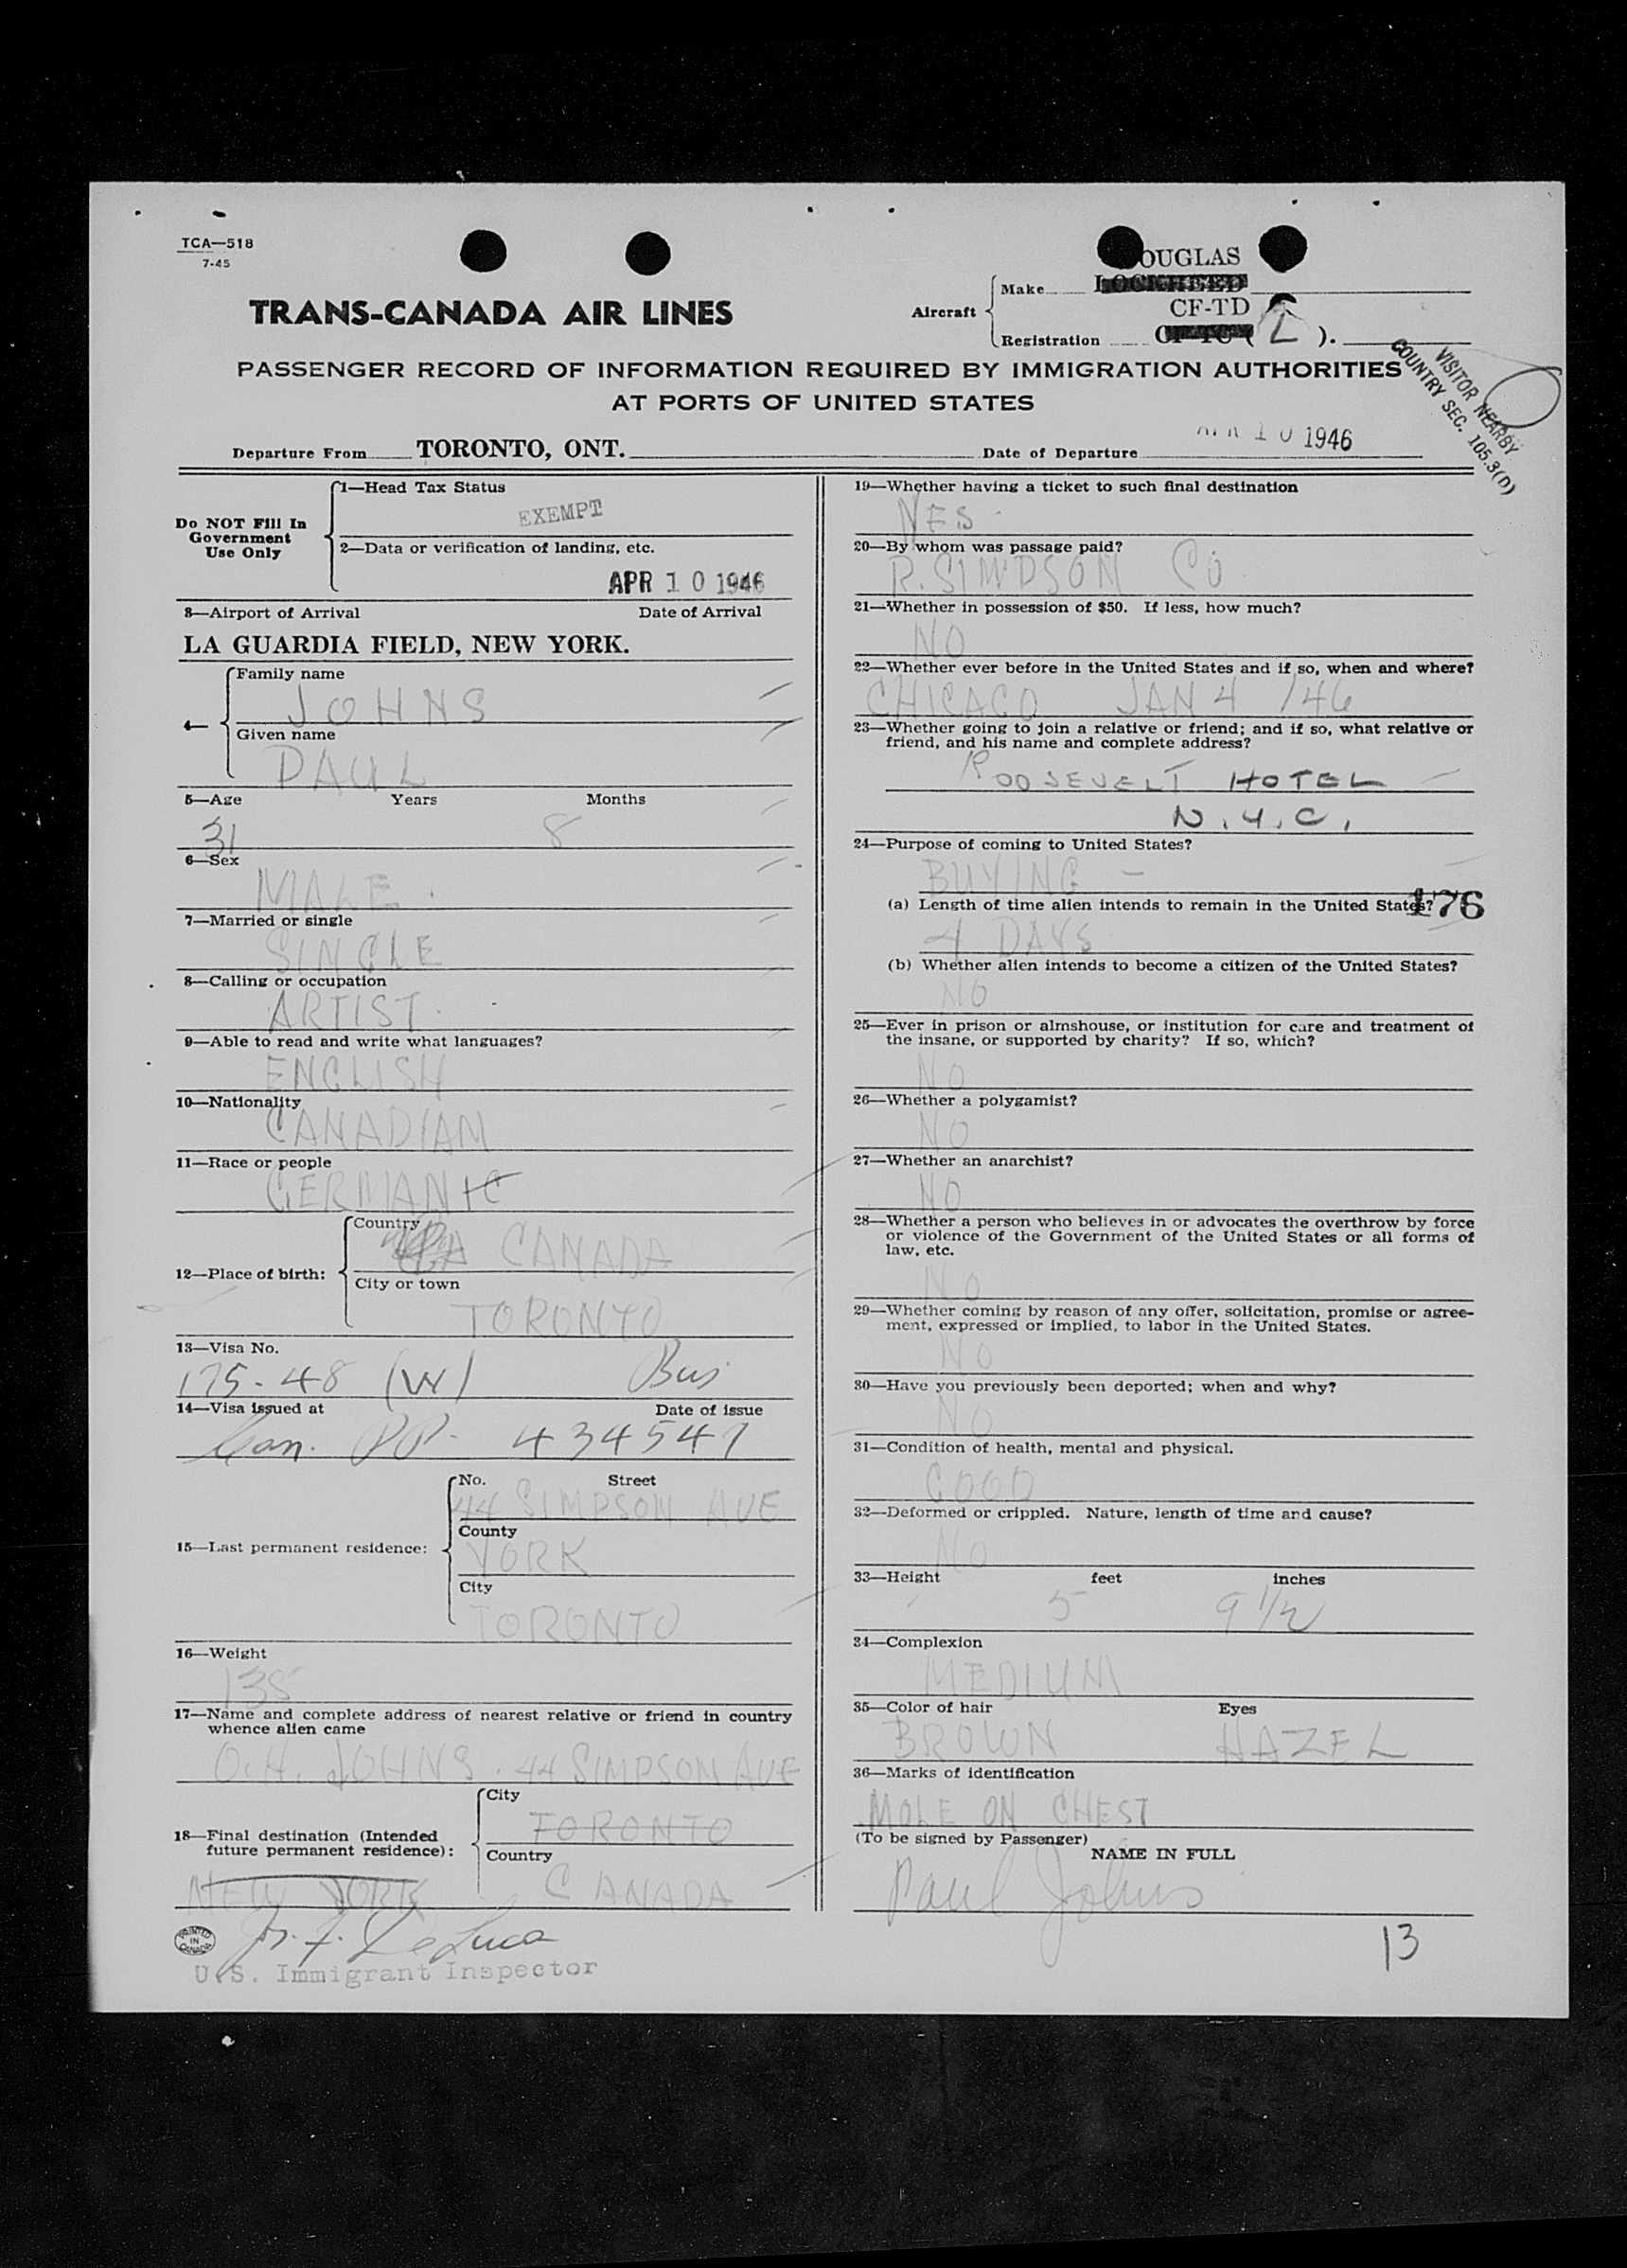 TCA—518
7-45
DOUGLAS
Make LOCKHEED
TRANS-CANADA AIR LINES
Aircraft
CF-TD
Registration CF-TC ( L ).
PASSENGER RECORD OF INFORMATION REQUIRED BY IMMIGRATION AUTHORITIES
AT PORTS OF UNITED STATES
VISITOR NEARBY
COUNTRY SEC. 105.3(D)
Departure From TORONTO, ONT.
Date of Departure APR 10 1946
Do NOT Fill In
Government
Use Only
1—Head Tax Status
EXEMPT
2—Data or verification of landing, etc.
APR 10 1946
3—Airport of Arrival Date of Arrival
LA GUARDIA FIELD, NEW YORK.
4—
Family name
JOHNS
Given name
PAUL
5—Age Years Months
31 8
6—Sex
MALE.
7—Married or single
SINGLE
8—Calling or occupation
ARTIST.
9—Able to read and write what languages?
ENGLISH
10—Nationality
CANADIAN
11—Race or people
GERMANIC
12—Place of birth:
Country
CANADA
City or town
TORONTO
13—Visa No.
175-48 (W) Bus
14—Visa issued at Date of issue
Can. PP. 434547
15—Last permanent residence:
No. Street
44 SIMPSON AVE
County
YORK
City
TORONTO
16—Weight
135
17—Name and complete address of nearest relative or friend in country
whence alien came
O.H. JOHNS. 44 SIMPSON AVE
18—Final destination (Intended
future permanent residence):
City
TORONTO
Country
NEW YORK CANADA
PRINTED
IN
CANADA
U.S. Immigrant Inspector
19—Whether having a ticket to such final destination
YES
20—By whom was passage paid?
R. SIMPSON CO
21—Whether in possession of $50. If less, how much?
NO
22—Whether ever before in the United States and if so, when and where?
CHICAGO JAN 4 /46
23—Whether going to join a relative or friend; and if so, what relative or
friend, and his name and complete address?
ROOSEVELT HOTEL
N.Y.C.
24—Purpose of coming to United States?
BUYING -
(a) Length of time alien intends to remain in the United States?
176
4 DAYS
(b) Whether alien intends to become a citizen of the United States?
NO
25—Ever in prison or almshouse, or institution for care and treatment of
the insane, or supported by charity? If so, which?
NO
26—Whether a polygamist?
NO
27—Whether an anarchist?
NO
28—Whether a person who believes in or advocates the overthrow by force
or violence of the Government of the United States or all forms of
law, etc.
NO
29—Whether coming by reason of any offer, solicitation, promise or agree-
ment, expressed or implied, to labor in the United States.
NO
30—Have you previously been deported; when and why?
NO
31—Condition of health, mental and physical.
GOOD
32—Deformed or crippled. Nature, length of time and cause?
NO
33—Height feet inches
5 9 1/2
34—Complexion
MEDIUM
35—Color of hair Eyes
BROWN HAZEL
36—Marks of identification
MOLE ON CHEST
(To be signed by Passenger)
NAME IN FULL
Paul Johns
13